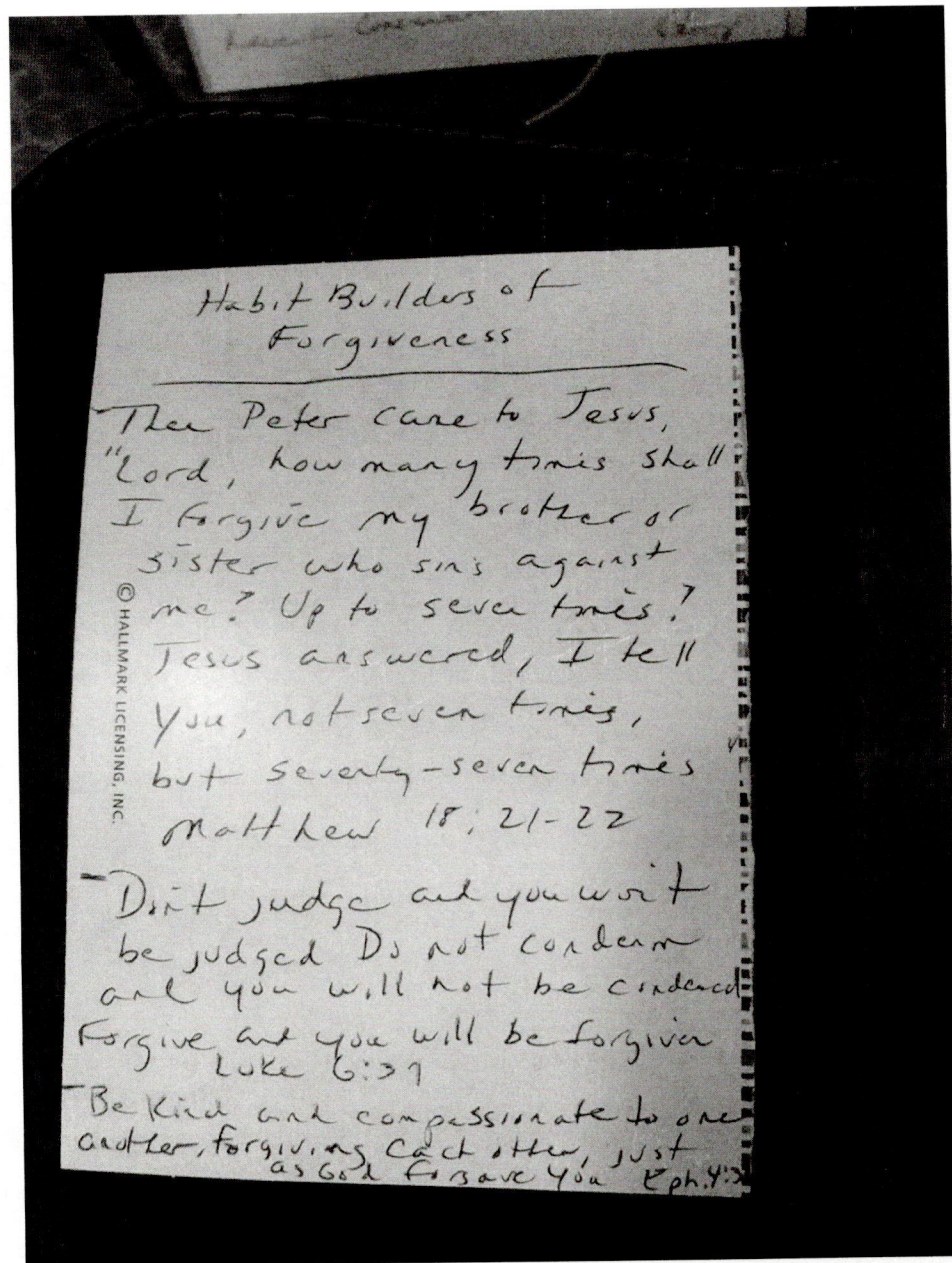 Advent
Habit Builders of
Forgiveness
- Then Peter came to Jesus,
"Lord, how many times shall
I forgive my brother or
sister who sins against
me? Up to seven times?
Jesus answered, I tell
You, not seven times,
but seventy-seven times
Matthew 18:21-22
- Don't judge and you won't
be judged Do not condemn
and you will not be condemned
Forgive and you will be forgiven
Luke 6:37
- Be Kind and compassionate to one
another, forgiving each other, just
as God forgave you Eph. 4:3
© HALLMARK LICENSING, INC.